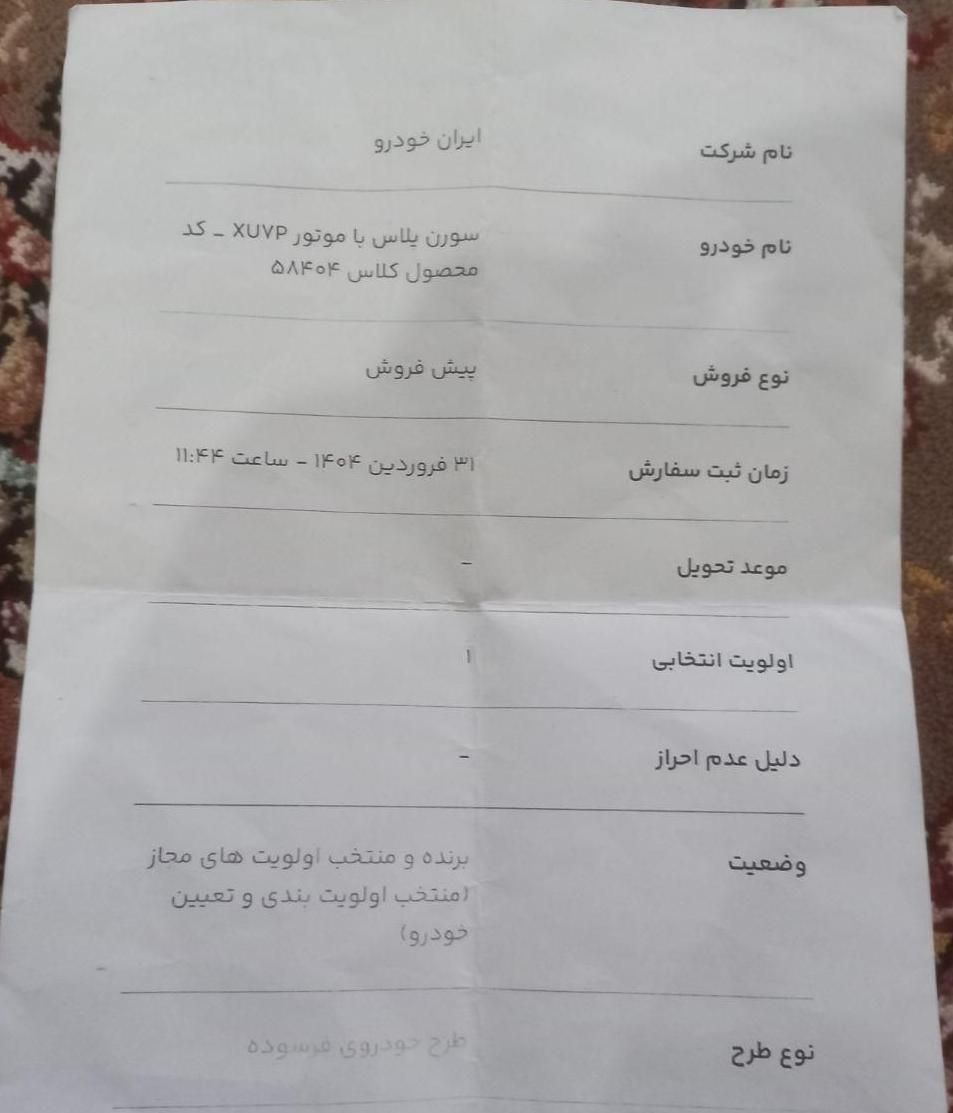 نام شرکت ایران خودرو
نام خودرو سورن پلاس با موتور XU7P _ کد
محصول کلاس ۵۸۴۰۴
نوع فروش پیش فروش
زمان ثبت سفارش ۳۱ فروردین ۱۴۰۴ - ساعت ۱۱:۴۴
موعد تحویل -
اولویت انتخابی ۱
دلیل عدم احراز -
وضعیت برنده و منتخب اولویت های مجاز
(منتخب اولویت بندی و تعیین
خودرو)
نوع طرح طرح خودروی فرسوده